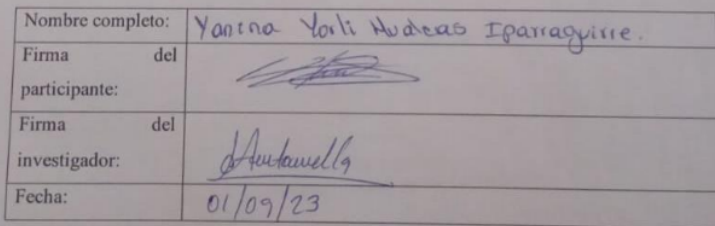 Nombre completo: Yanina Yorli Iparraguirre.
Firma del
participante:
Firma del
investigador:
Fecha: 01/09/23